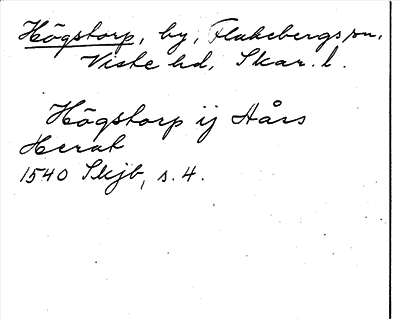 Högstorp, by, Flakebergs sn.
Viste hd, Skar. l.
Högstorp ij Hårs
Herat
1540 Skjb, s. 4.